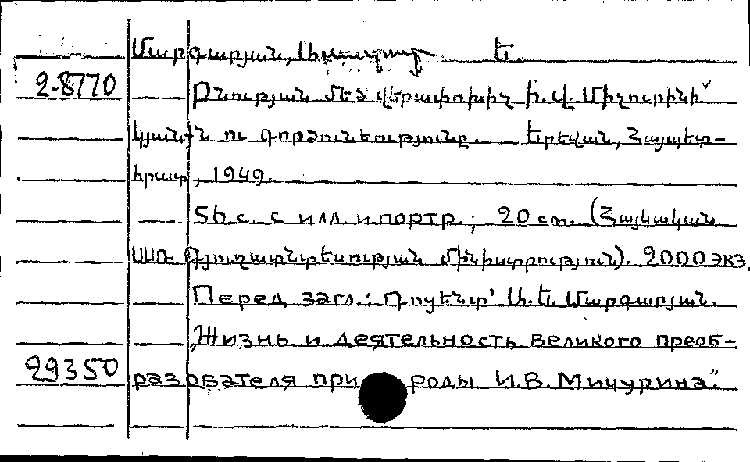 Մարգարյան, Ե.
2-8770
Բնության մեծ վերափոխիչ Ի. Վ. Միչուրինի
կյանքն ու գործունեությունը. Երևան, Հայպետ-
հրատ, 1949.
56 с. с илл. и портр.; 20 см. (Հայկական
ՍՍՌ Գյուղատնտեսության մինիստրություն). 2000 экз.
Перед загл.: Դոցենտ Ա. Ե. Մարգարյան.
„Жизнь и деятельность великого преоб-
29350
разователя природы И. В. Мичурина."